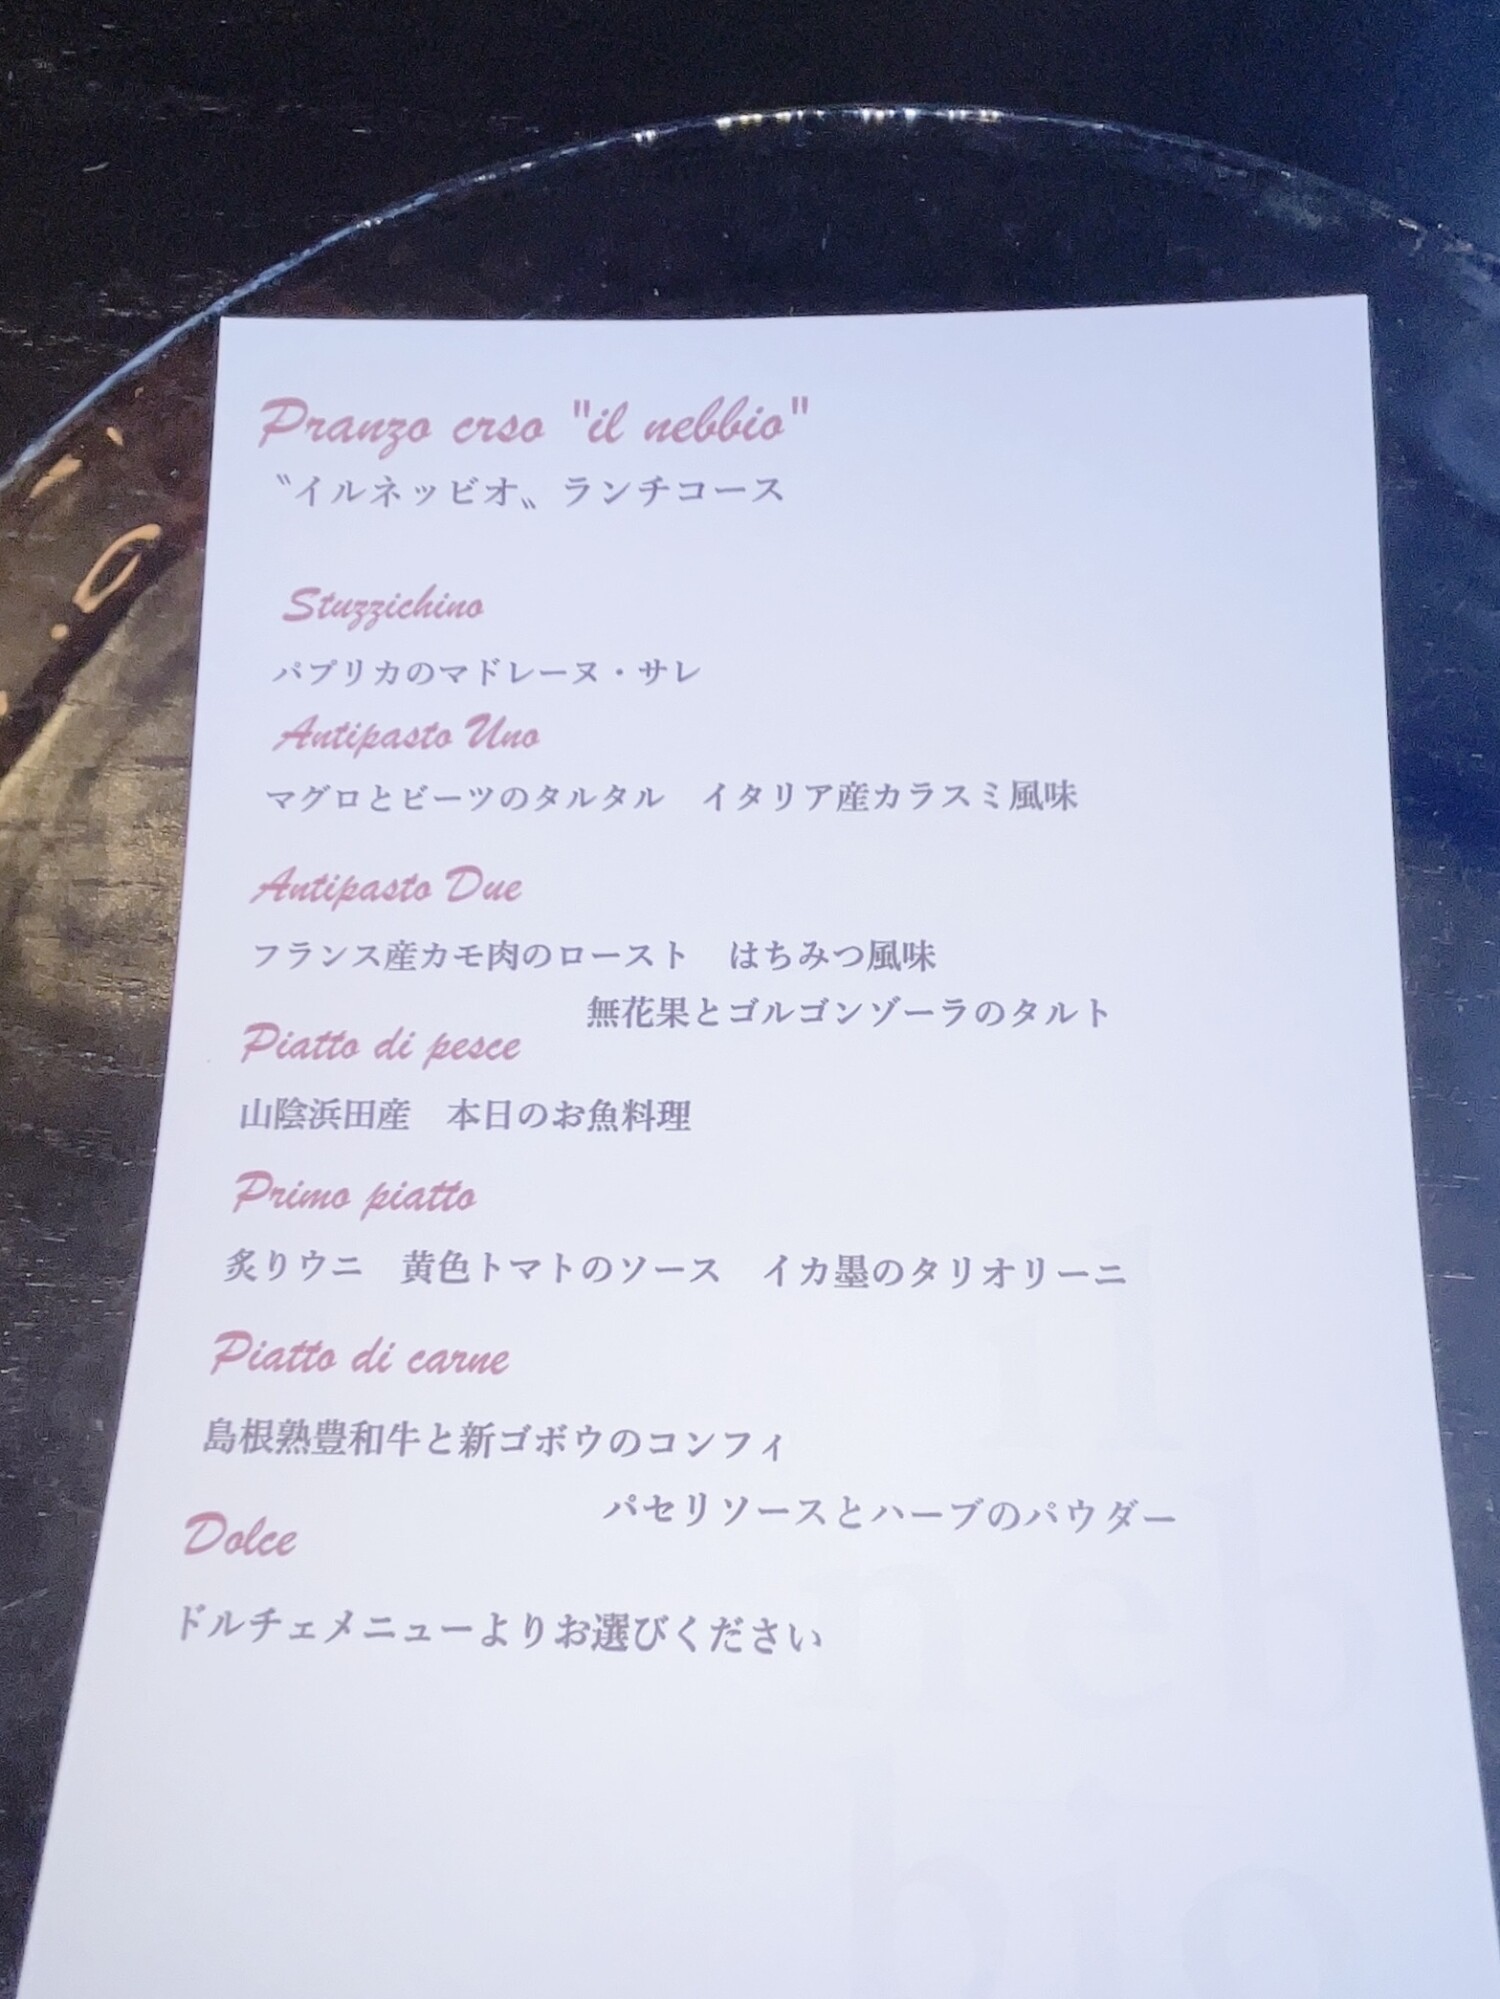 Pranzo crso "il nebbio"
〝イルネッビオ〟ランチコース
Stuzzichino
パプリカのマドレーヌ・サレ
Antipasto Uno
マグロとビーツのタルタル　イタリア産カラスミ風味
Antipasto Due
フランス産カモ肉のロースト　はちみつ風味
無花果とゴルゴンゾーラのタルト
Piatto di pesce
山陰浜田産　本日のお魚料理
Primo piatto
炙りウニ　黄色トマトのソース　イカ墨のタリオリーニ
Piatto di carne
島根熟豊和牛と新ゴボウのコンフィ
パセリソースとハーブのパウダー
Dolce
ドルチェメニューよりお選びください
il
neb
bio